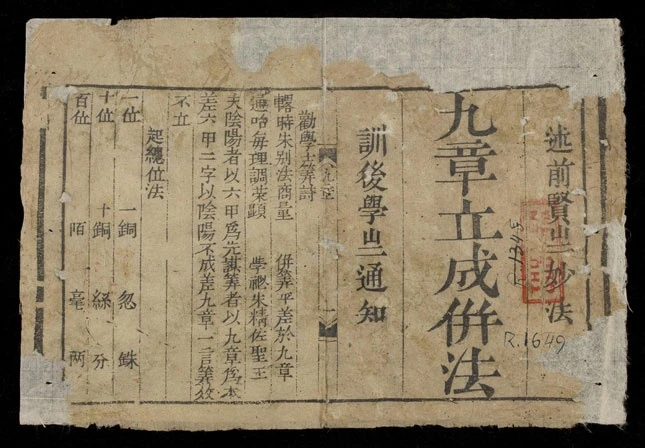 述前賢㞢妙法
九章立成併法
訓後學㞢通知
勸學士筭詩
轄時朱別法商量 併筭平差於九章
通哈每理調荣顯 學 朱精佐聖王
夫陰陽者以六甲爲先 筭者以九章爲本
差六甲二字以陰陽不成差九章一言筭效
不立
起總位法
一位 一銅 忽 銖
十位 十銅 絲 分
百位 陌 毫 两
R.1649